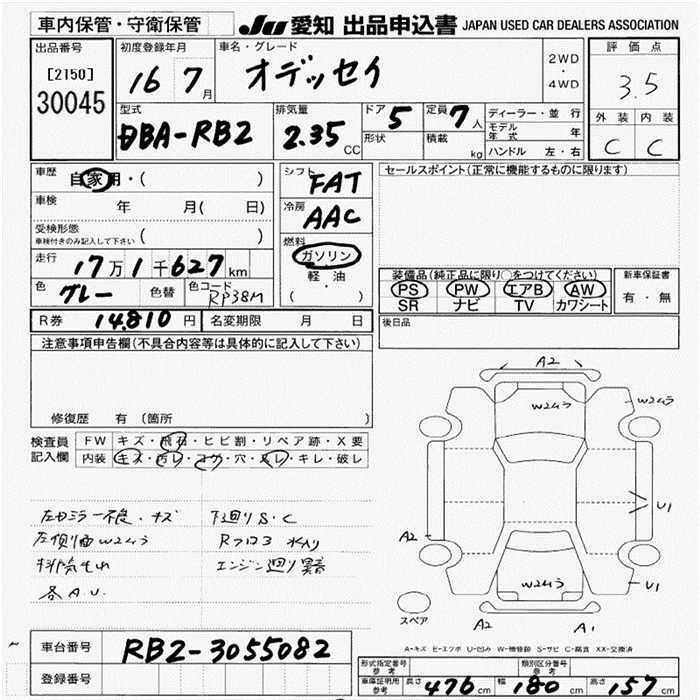 車内保管・守衛保管
JU 愛知 出品申込書 JAPAN USED CAR DEALERS ASSOCIATION
出品番号 初度登録年月 車名・グレード 評価点
[2150]
30045
16 7月 オデッセイ
2WD
・
4WD
3.5
型式 排気量 ドア 5 定員 7人 ディーラー・並行 外装 内装
DBA-RB2 2.35 CC 形状 積載 kg モデル年式 年
ハンドル 左・右 C C
車歴 自家用・( ) シフト FAT セールスポイント(正常に機能するものに限ります)
車検 年 月( 日) 冷房 AAC
受検形態
車検付きのみ記入して下さい ( )
燃料 ガソリン
軽・油
( )
走行 17万1千627km
装備品(純正品に限り○をつけてください) 新車保証書
色 グレー 色替 色コード RP38M
PS PW エアB AW 有・無
SR ナビ TV カワシート
R券 14,810円 名変期限 月 日 後日品
注意事項申告欄(不具合内容等は具体的に記入して下さい)
修復歴 有(箇所 )
検査員記入欄 FW キズ・飛石・ヒビ割・リペア跡・X要
内装 キズ・汚レ・コゲ・穴・スレ・キレ・破レ
左ドミラー不良・キズ 下廻りS・C
左側面W2ムラ Rフロア 水入り
排気もれ エンジン廻り異音
各A.U.
A2
W2ムラ
W2ムラ
U1
A2
W2ムラ
U1
スペア
A2 A1
A-キズ E-エクボ U-凹み W-補修跡 S-サビ C-腐食 XX-交換済
車台番号 RB2-3055082
登録番号
形式指定番号 参考 類別区分番号 参考
車庫証明用 参考 長さ 476cm 幅 180cm 高さ 157cm